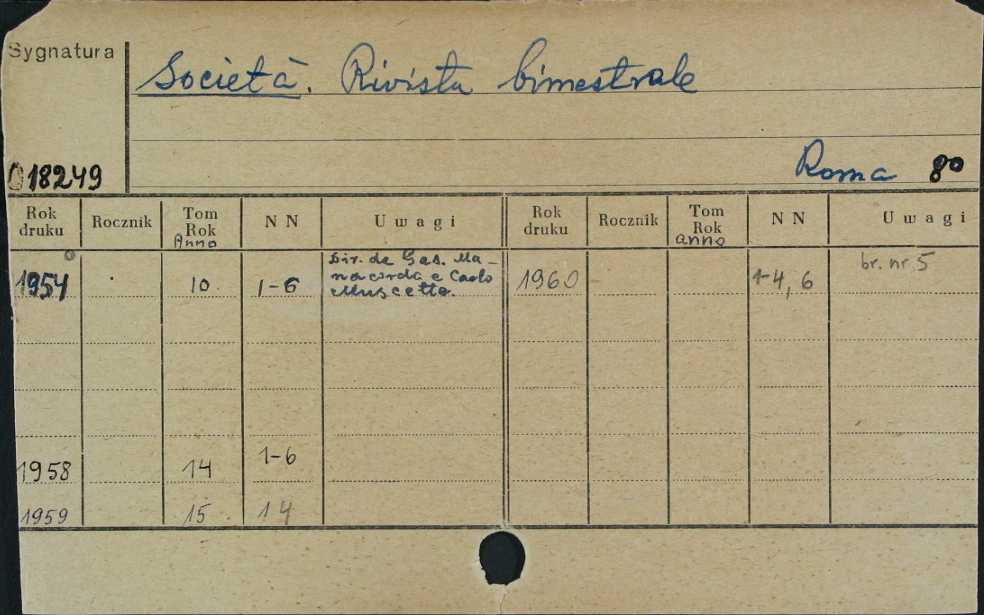 Sygnatura
Società. Rivista bimestrale
18249
Roma 8o
Rok druku Rocznik Tom Rok Anno NN Uwagi Rok druku Rocznik Tom Rok anno NN Uwagi
1954 10 1-6 Dir. da Gas. Ma-
nacorda e Carlo
Muscetta.
1960 1-4, 6 br. nr 5
1958 14 1-6
1959 15 1 4